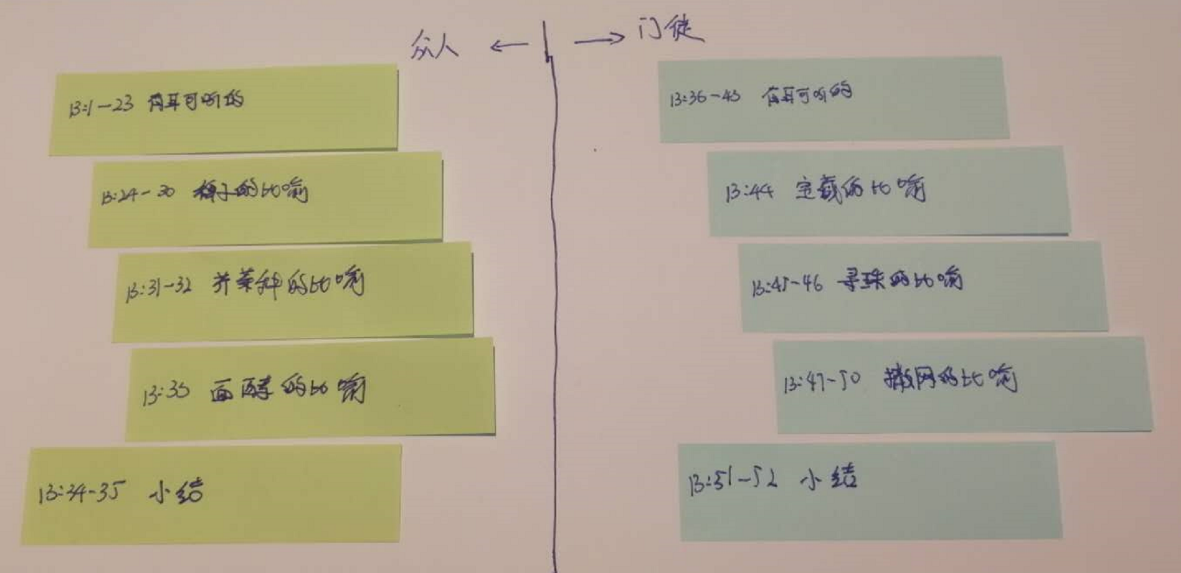 众人 ← | → 门徒
13:1-23 有耳可听的
13:24-30 稗子的比喻
13:31-32 芥菜种的比喻
13:33 面酵的比喻
13:34-35 小结
13:36-43 有耳可听的
13:44 宝藏的比喻
13:45-46 寻珠的比喻
13:47-50 撒网的比喻
13:51-52 小结